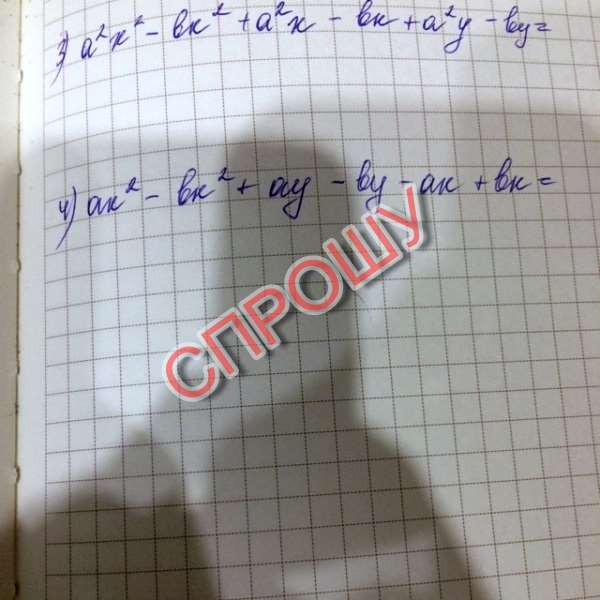 3) a²x² - вx² + a²x - вx + a²y - вy =
4) ax² - вx² + ay - вy - ax + вx =
СПРОШУ